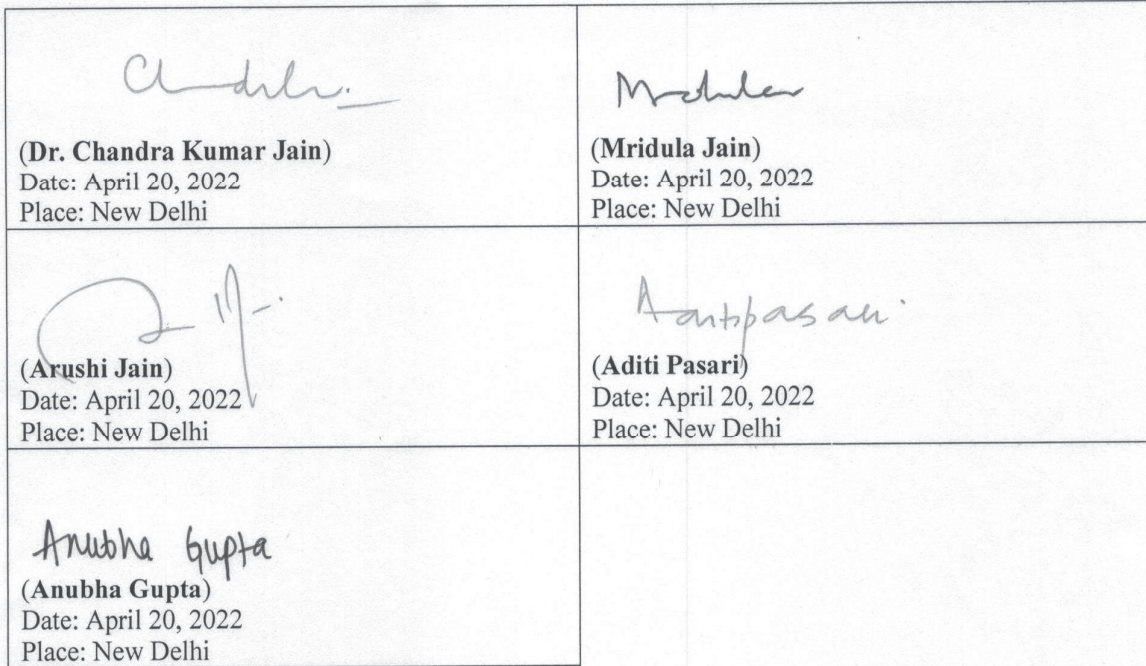 (Dr. Chandra Kumar Jain)
Date: April 20, 2022
Place: New Delhi
Mridula
(Mridula Jain)
Date: April 20, 2022
Place: New Delhi
(Arushi Jain)
Date: April 20, 2022
Place: New Delhi
(Aditi Pasari)
Date: April 20, 2022
Place: New Delhi
Anubha Gupta
(Anubha Gupta)
Date: April 20, 2022
Place: New Delhi